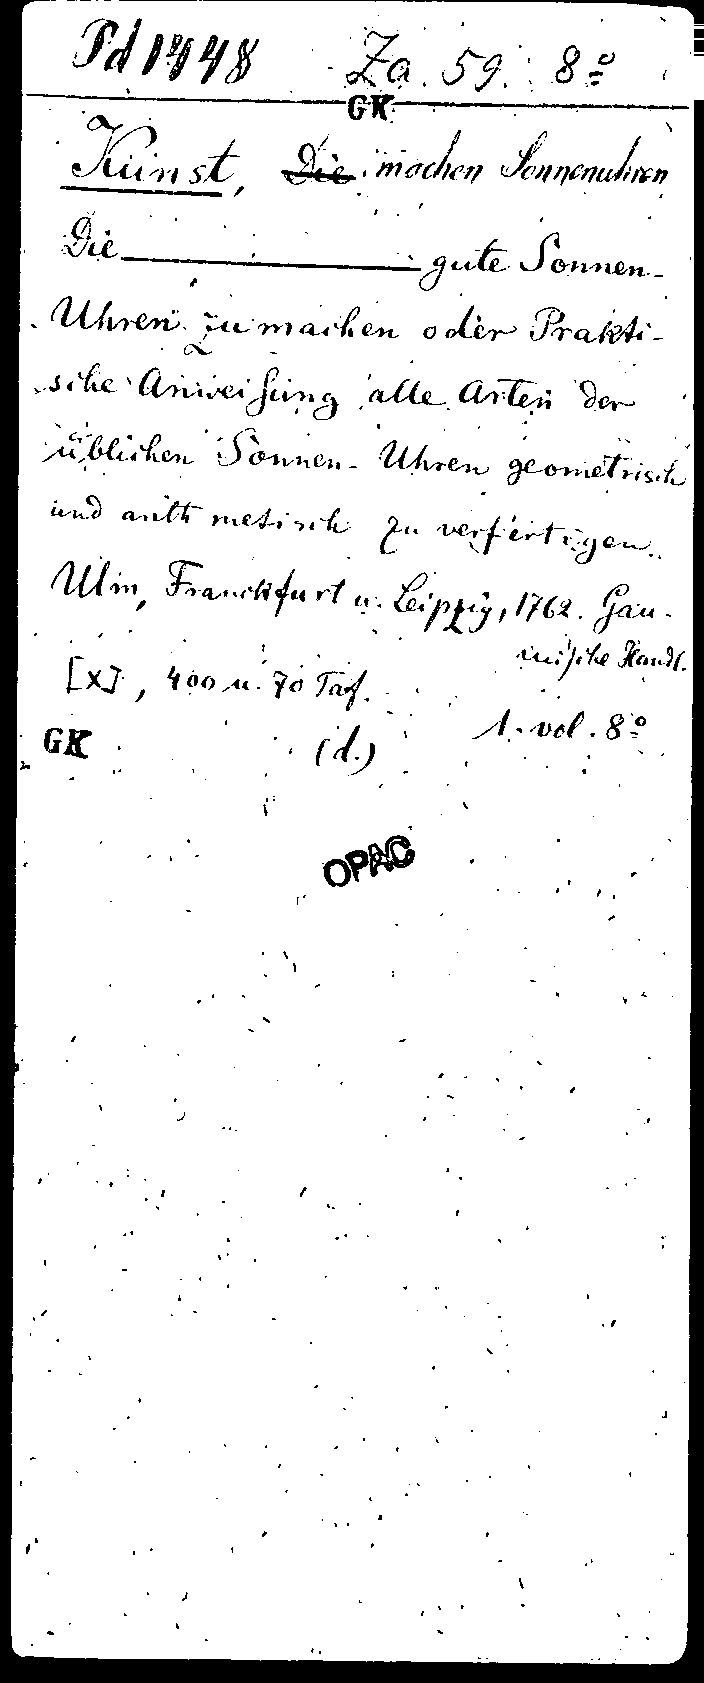 Pd 1448 Za. 59. 8º
GK
Kunst, Die machen Sonnenuhren
Die gute Sonnen-
Uhren zu machen oder Prakti-
sche Anweisung alle Arten der
üblichen Sonnen-Uhren geometrisch
und arithmetisch zu verfertigen.
Ulm, Franckfurt u. Leipzig, 1762. Gau-
mische Handl.
[X], 400 u. 70 Taf.
1. vol. 8º
GK (d.)
OPAC